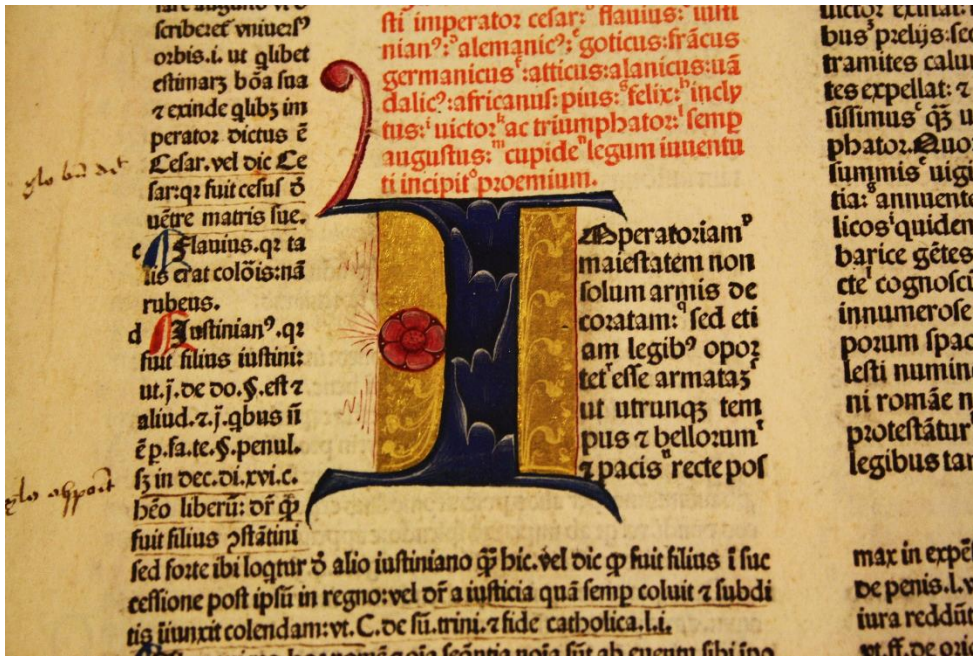 scribere͛ vniuersꝰ
orbis.i. ut ꝗlibet
estimarꝫ bōa sua
⁊ exinde ꝗlibꝫ im
perator dictus ē
Cesar. vel dic Ce
sar: qꝛ fuit cesus ð
uētre matris sue.
e Flauius. qꝛ ta
lis erat colōis: nā
rubeus.
d Iustinianꝰ. qꝛ
fuit filius iustini:
ut.j. de do. §. est ⁊
aliud. ⁊.j. ꝗbus
ē p. fa. te. §. penul.
sꝫ in dec. di. xvi. c.
hēo liberū: dr̄ ꝙ
fuit filius ꝯstātini
sed forte ibi loqtur ð alio iustiniano ꝙ̄ hic. vel dic ꝙ fuit filius ī suc
cessione post ipsū in regno: vel dr̄ a iusticia quā semp coluit ⁊ subdi
tis iiunxit colendam: vt. C. de sū. trini. ⁊ fide catholica. l.i.
sti imperator cesar: flauius: iusti
nianꝰ: alemanicꝰ: goticus: frācus
germanicus: atticus: alanicus: uā
dalicꝰ: africanus: pius: felix: incly
tus: uictor ac triumphator: semp
augustus: cupide legum iuuentu
ti incipit proemium.
I Mperatoriam
maiestatem non
solum armis de
coratam: sed eti
am legibꝰ opoꝛ
tet esse armataꝫ
ut utrunqꝫ tem
pus ⁊ bellorum
⁊ pacis recte pos
bus prelijs: sed
tramites calu
tes expellat: ⁊
sissimus qꝫ u
phator. Quoꝛ
summis uigi
tia: annuente
licos quidem
barice gētes
cte cognoscu
innumerose
porum spac
lesti numin
ni romāe n
protestātur
legibus tan
max in expē
de penis. l. v
iura reddūt
vt. ff. de ori